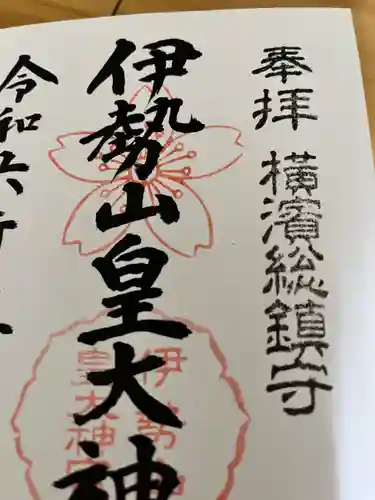 奉拝 横濱総鎮守
伊勢山皇大神
令和六年
伊勢山
皇大神宮